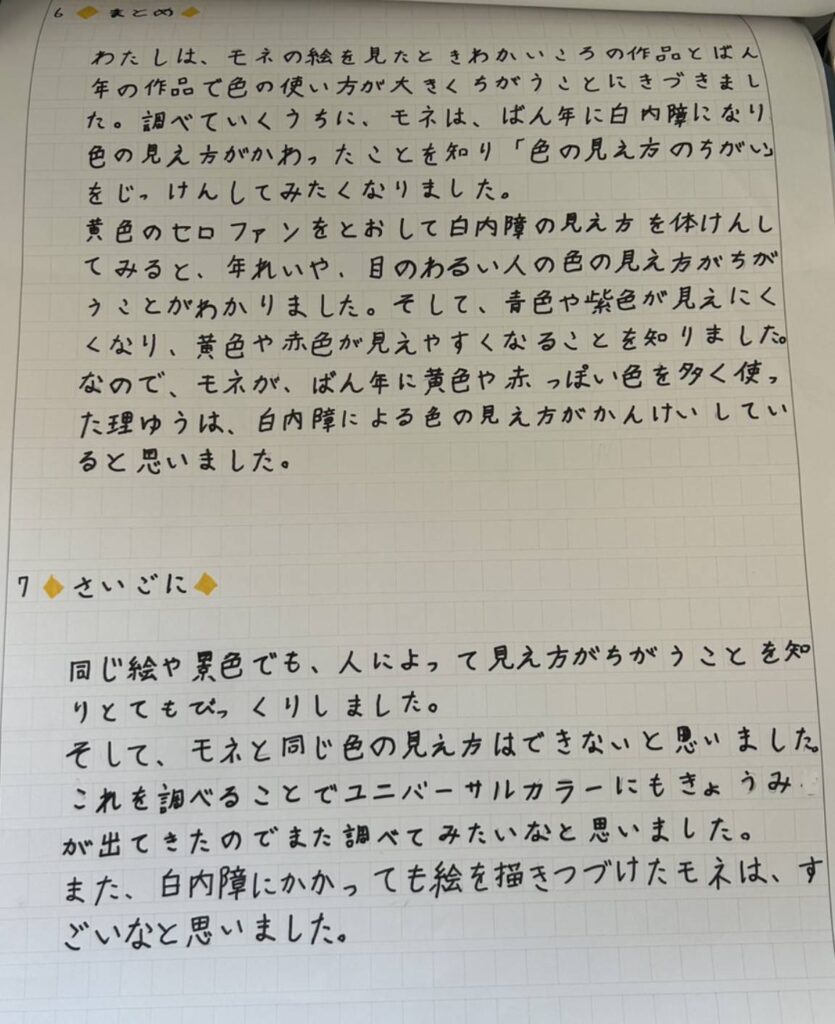 6 まとめ
わたしは、モネの絵を見たときわかいころの作品とばん
年の作品で色の使い方が大きくちがうことにきづきまし
た。調べていくうちに、モネは、ばん年に白内障になり
色の見え方がかわったことを知り「色の見え方のちがい」
をじっけんしてみたくなりました。
黄色のセロファンをとおして白内障の見え方を体けんし
てみると、年れいや、目のわるい人の色の見え方がちが
うことがわかりました。そして、青色や紫色が見えにく
くなり、黄色や赤色が見えやすくなることを知りました。
なので、モネが、ばん年に黄色や赤っぽい色を多く使っ
た理ゆうは、白内障による色の見え方がかんけいしてい
ると思いました。
7 さいごに
同じ絵や景色でも、人によって見え方がちがうことを知
りとてもびっくりしました。
そして、モネと同じ色の見え方はできないと思いました。
これを調べることでユニバーサルカラーにもきょうみ
が出てきたのでまた調べてみたいなと思いました。
また、白内障にかかっても絵を描きつづけたモネは、す
ごいなと思いました。